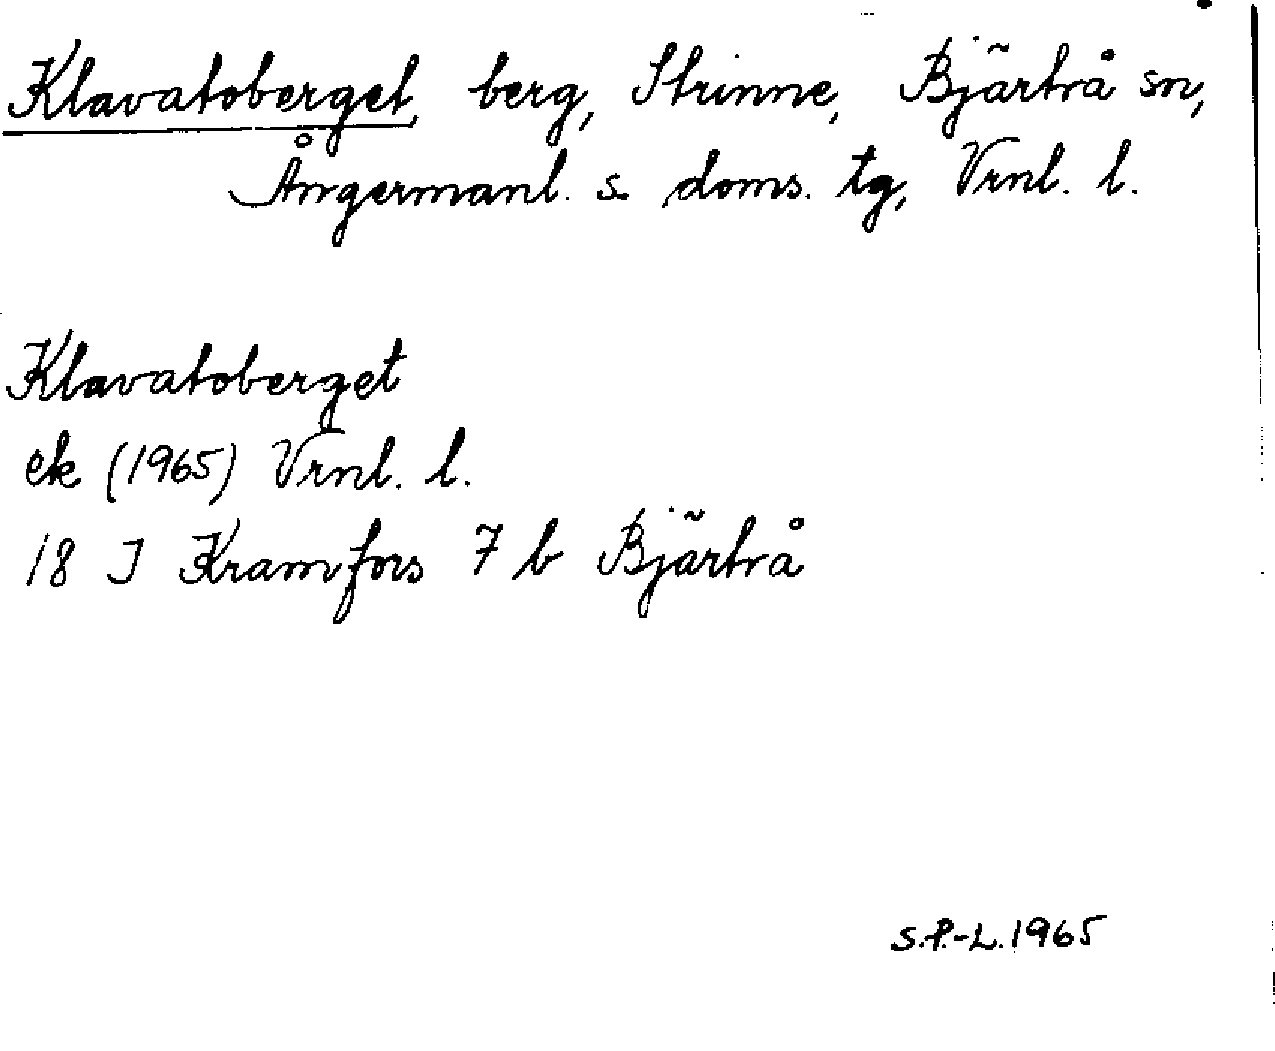 Klavatoberget, berg, Strinne, Bjärtrå sn,
Ångermanl. s. doms. tg, Vrnl. l.
Klavatoberget
ek (1965) Vrnl. l.
18 J Kramfors 7 b Bjärtrå
S.P.-L. 1965